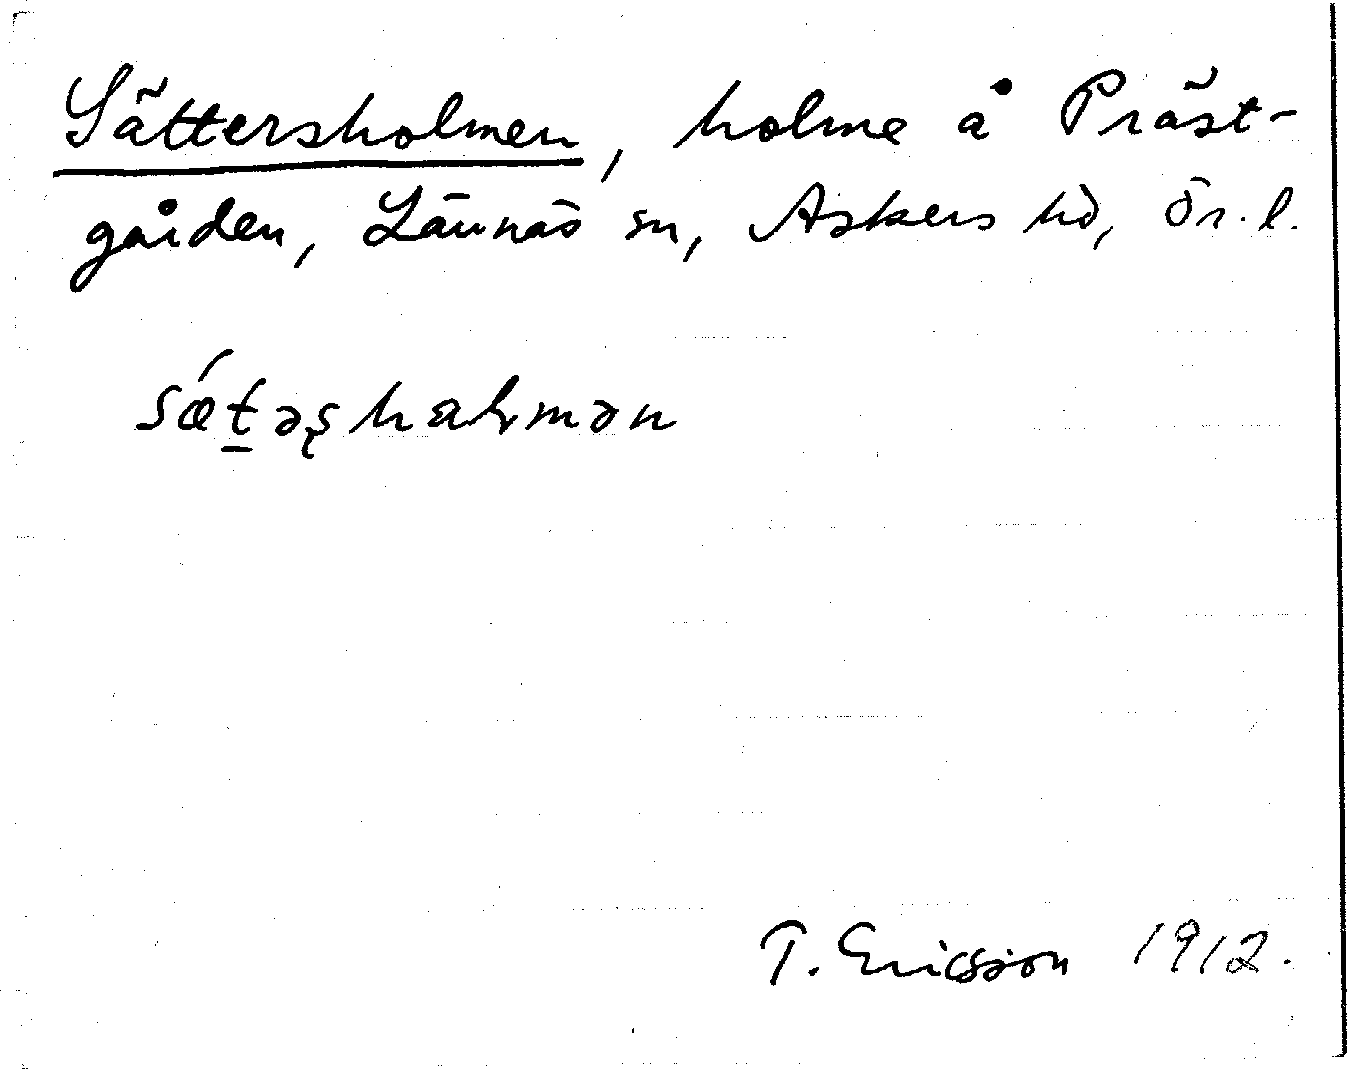 Sättersholmen, holme å Präst-
gården, Lännäs sn, Askers hd, Ör. l.
sǿt̠əʂhalmən
T. Ericsson 1912.